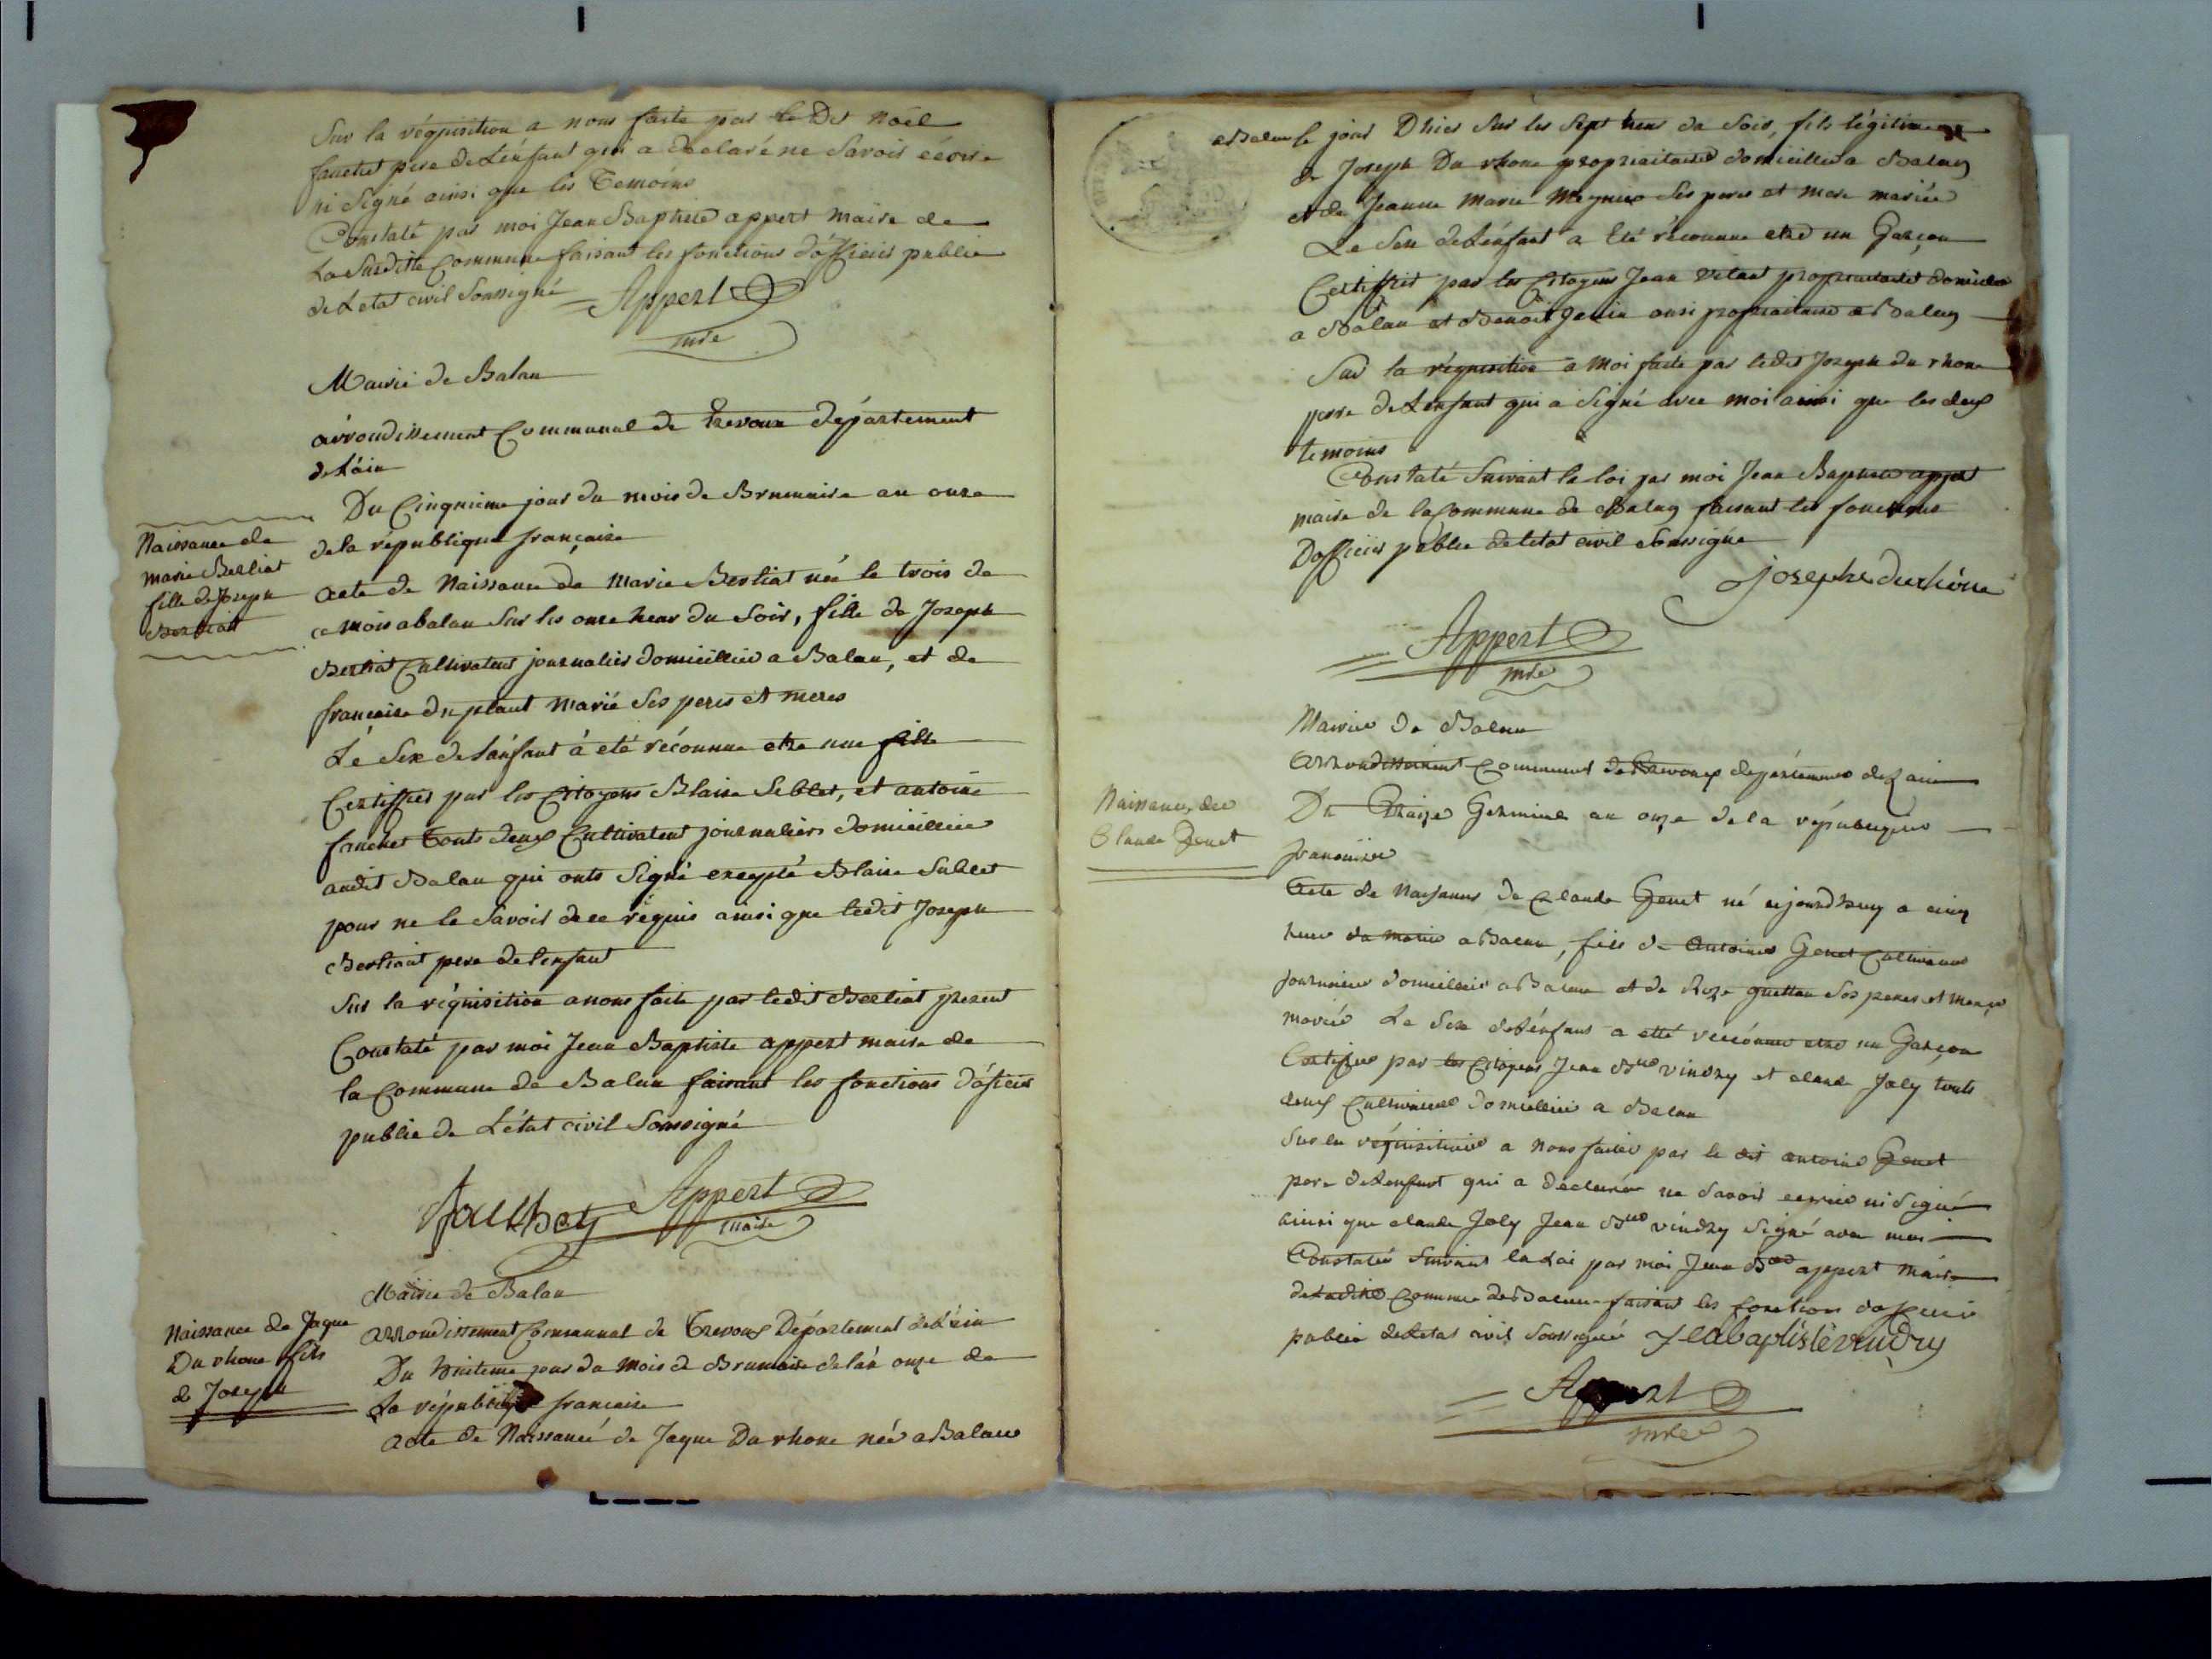 Sur la réquisition a nous faite par le Dit Noël
fauchet pere de Lénfant qui a déclaré ne Savoir écrire
ni Signé ainsi que les Temoins
Constaté par moi Jean Baptiste appert maire de
La Susditte Commune faisant les fonctions d'officier public
de Letat civil Soussigné Appert
mre
Mairie de Balan
arrondissement Communal de trevoux département
de L'ain
Du Cinquieme jour du mois de Brumaire an onze
de la république française
Naissance de
marie Berliat
fille de Joseph
Berliat
acte de Naissance de Marie Berliat née le trois de
ce mois a balan Sur les onze heur du Soir, fille de Joseph
Berliat Cultivateur journalier domicillié a Balan, et de
françoise du plant marié Ses peres et meres
Le Sex de lanfant à eté réconnue etre une fille
Certiffiés par les Citoyens Blaise Seblet, et antoine
fauchet touts deux Cultivateur journaliers domicilliée
audit Balan qui onts Signé excepté Blaise Sublet
pour ne le Savoir de ce réquis ainsi que ledit Joseph
Berliant pere de lenfant
Sur la réquisition a nous faite par ledit Berliat present
Constaté par moi Jean Baptiste appert maire de
la Commune de Balan faisant les fonctions d'oficier
public de L'état civil Soussigné
fauchey Appert
maire
Mairie de Balan
Naissance de Jaque
Du rhone fils
de Joseph
arrondissement Communal de Trevoux Département de L'ain
Du huitieme jour du mois de Brumaire de lán onze de
La république francaise
acte de Naissance de Jaque Du rhone née a Balan
a Balan le jour D'hier Sur les Sept heur du Soir, fils légitime
de Joseph Du rhone propriaitaire domicillié a Balan
et de Jeanne Marie Megnier Ses peres et mere mariée
Le Sex de Lénfant a Eté réconnue etre un Garçon
Certiffiés par les Citoyens Jean propriaitaire domicilié
a Balan et Benoit Janin ausi propriaitaire a Balan
Sur la réquisition a moi faite par ledit Joseph du rhone
pere de Lenfant qui a Signé avec moi ainsi que les deux
temoins
Constaté Suivant la loi par moi Jean Baptiste appert
maire de la Commune de Balan faisant les fonctions
Dofficier public de letat civil Soussigné
joseph durhône
Appert
mre
Mairie de Balan
arrondissement Communal de Trevoux département de Lain
Naissance de
Claude Genet
Du Germinal an onze de la république
francaise
acte de Naissance de Claude Genet né aujourdhuy a cinq
heur du matin a Balan, fils de Antoine Genet Cultivateur
journalier domicillié a Balan et de Roze guettan Ses peres et meres
mariée Le Sex de Lénfant a etté reconnue etre un Garçon
Certifiée par les Citoyens Jean Bte vindry et claude Joly touts
deux Cultivateur domicillié a Balan
Sur la réquisition a nous faite par le dit antoine Genet
pere de Lenfant qui a déclaré ne Savoir ecrire ni Signé
ainsi que claude Joly Jean Bte vindry Signé avec moi
Constatée Suivant la Loi par moi Jean Bte appert maire
de Ladite Commune de Balan faisant les fonction dofficier
public de Letat civil Soussigné Jeabaptiste vindry
Appert
mre